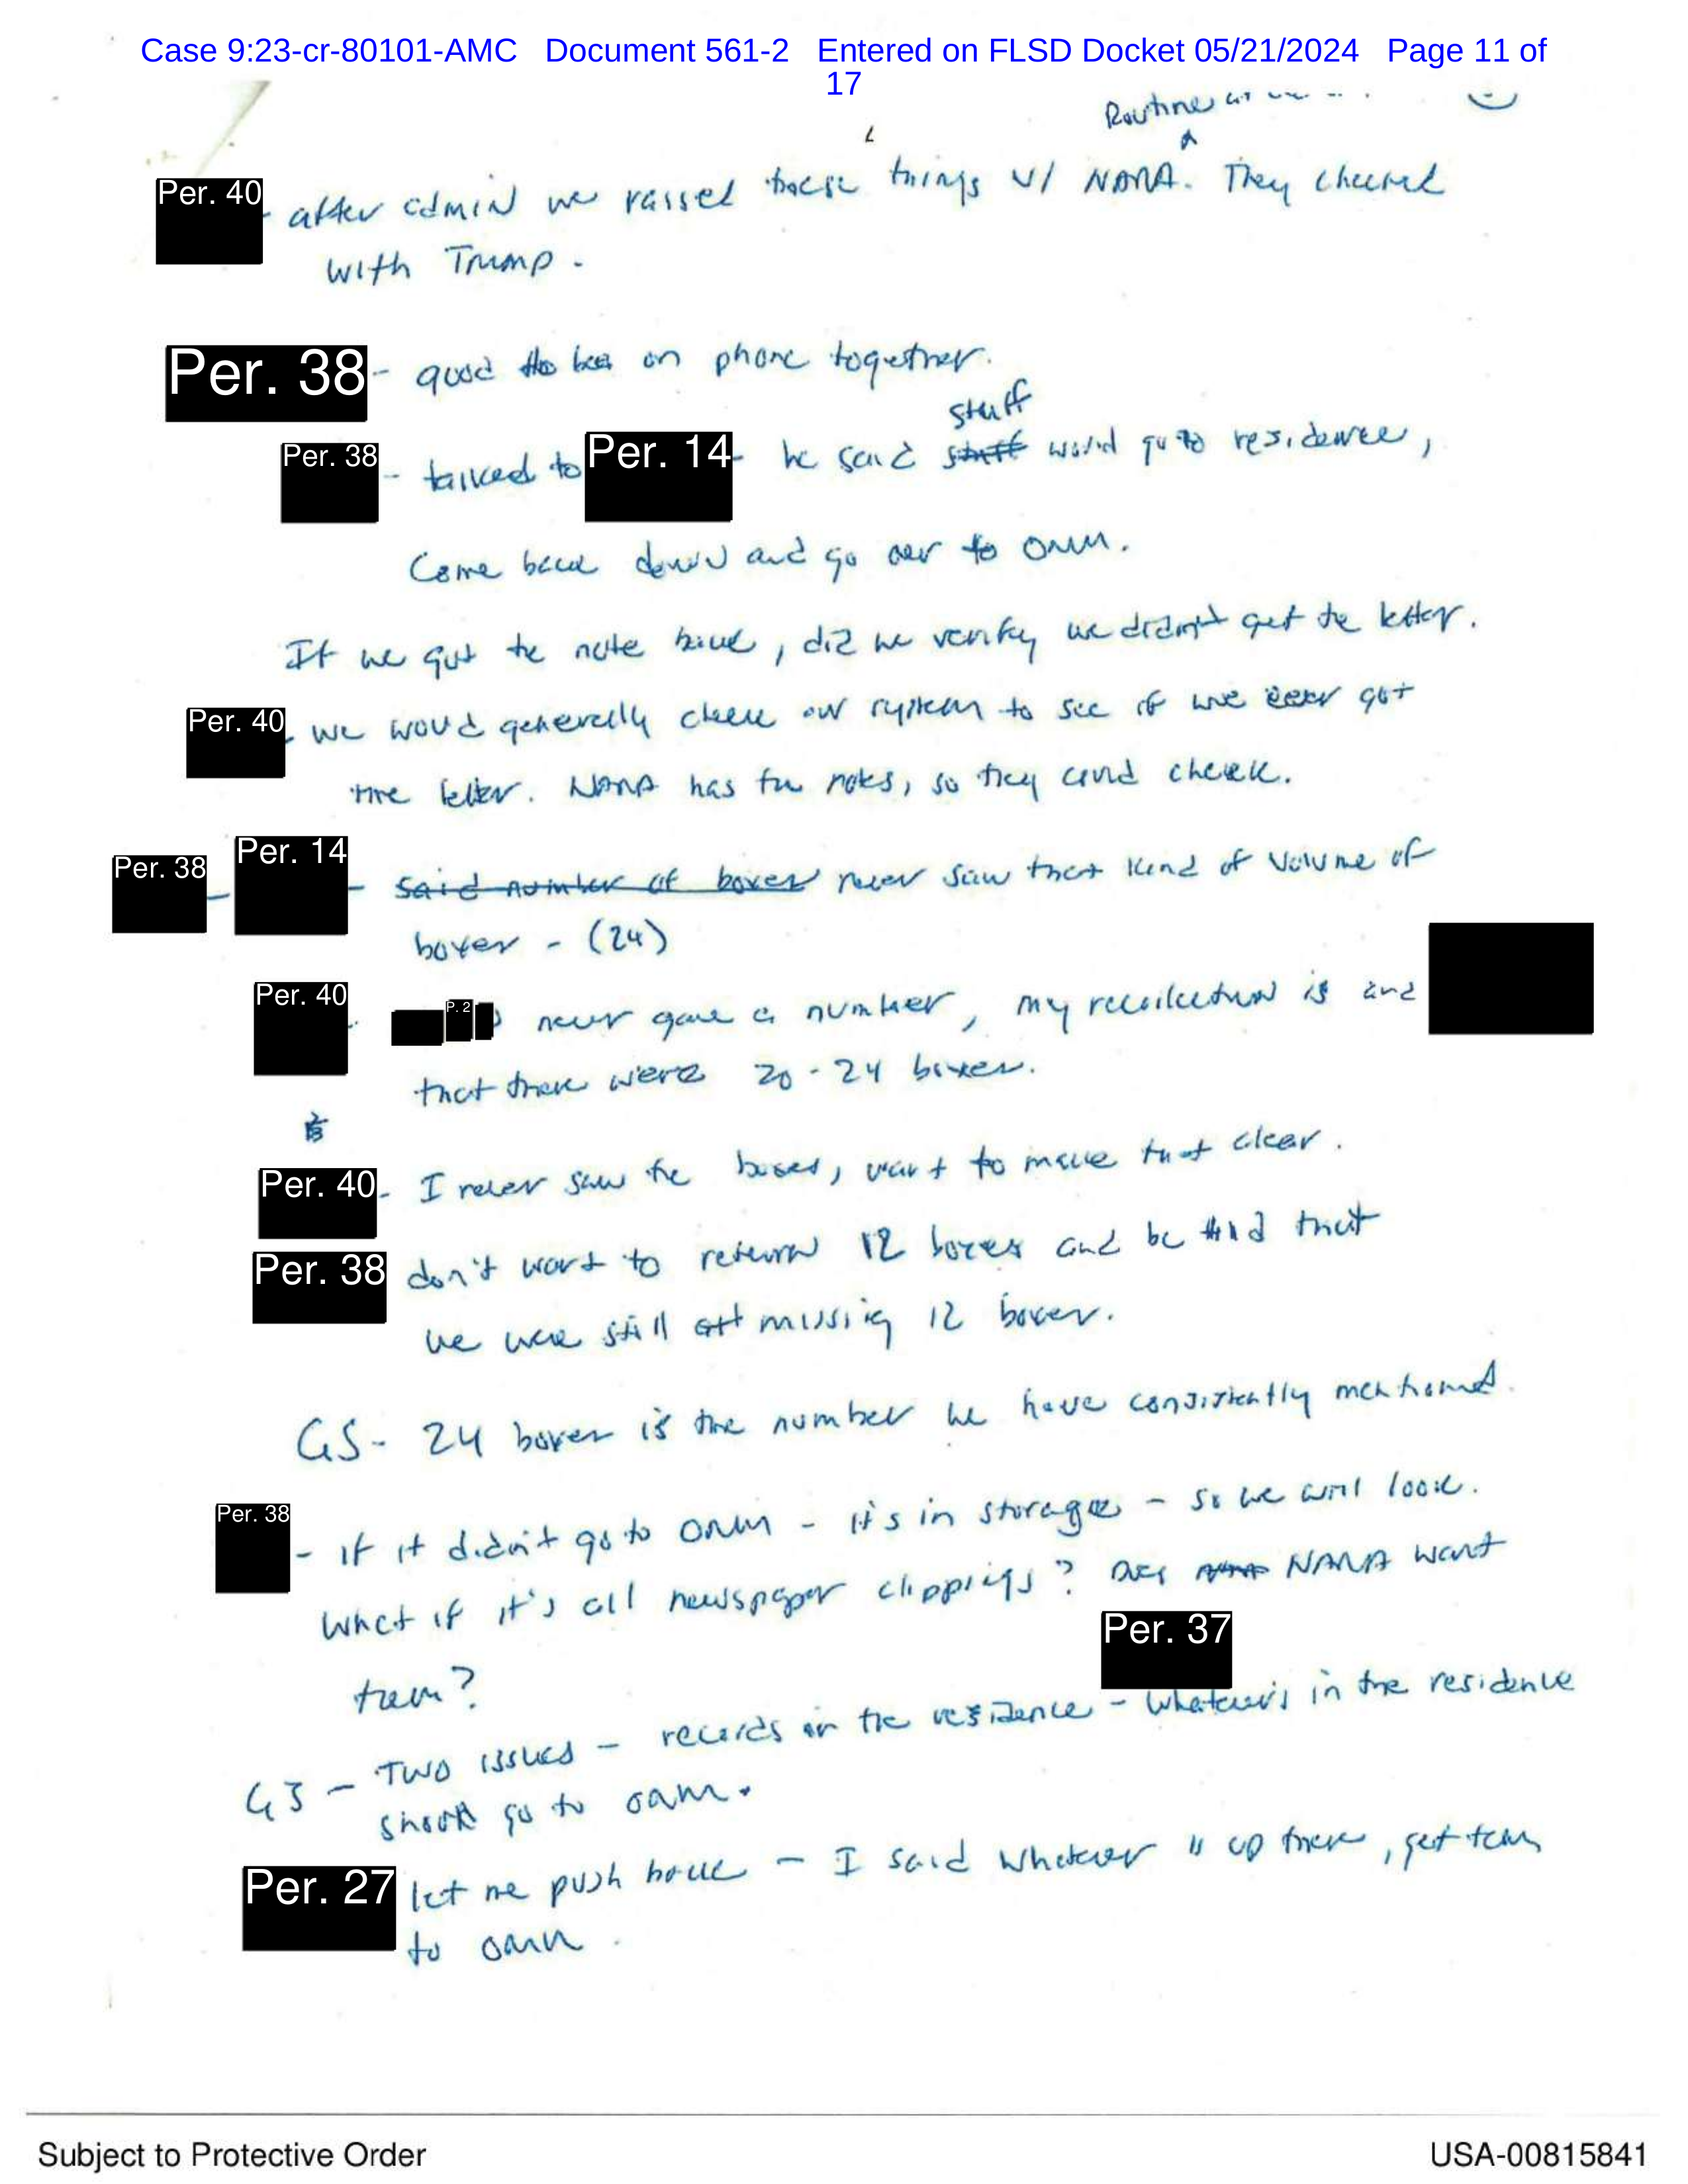 Case 9:23-cr-80101-AMC Document 561-2 Entered on FLSD Docket 05/21/2024 Page 11 of
17
Routine
Per. 40 - after admin we raised these things w/ NARA. They checked
with Trump.
Per. 38 - good to be on phone together.
stuff
Per. 38 - talked to Per. 14 - he said stuff would go to residence,
Come back down and go over to ORM.
If we got the note back, did we verify we didn't get the letter.
Per. 40 - we would generally check our system to see if we ever got
the letter. NARA has the notes, so they could check.
Per. 38 - Per. 14 - said number of boxes never saw that kind of volume of
boxes - (24)
Per. 40 - P. 2 never gave a number, my recollection is and
that there were 20-24 boxes.
Per. 40 - I never saw the boxes, want to make that clear.
Per. 38 don't want to return 12 boxes and be told that
we were still missing 12 boxes.
GS - 24 boxes is the number we have consistently mentioned.
Per. 38 - if it didn't go to ORM - it's in storage - so we will look.
What if it's all newspaper clippings? Does NARA want
Per. 37
them?
GS - Two issues - records in the residence - whatever's in the residence
should go to ORM.
Per. 27 let me push back - I said whatever is up there, get them
to ORM.
Subject to Protective Order
USA-00815841